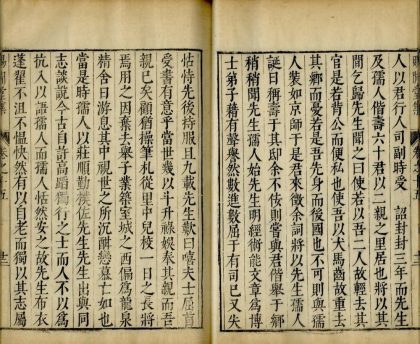 人以君行人司副時受　詔封封三年而先生
壽六及孺人偕壽六十君以二親之里居也將以其
間乞歸先生聞之曰使若以吾二人故輕去其
官是若背公而便私也使吾以犬馬齒故重去
其鄉而憂若是吾先身而後國也不可則與孺
人裝如京師于是君來徵余詞將以先生孺人
誕日稱壽于其邸余不佞則嘗與君偕舉于鄉
稍稍聞先生孺人始先生明經術能文章爲博
士弟子藉有聲譽然數進數屈于有司已又失
怙恃先後持服且九載先生歎曰嘻夫士扃首
受書有意乎當世幾以斗升祿娛奉其親而吾
親已矣顧猶操筆札從里中兒校一日之長將
焉用之因棄去舉子業築室城之西偏爲龍泉
精舍日游息其中視世之所沉酣戀慕亡如也
當是時孺人以莊順勤儉佐先生先生出與同
志談說今古自許高蹈獨行之士而人不以爲
抗入以語孺人而孺人恬然安之故先生布衣
蓬藋不沮不慍怏然有以自老而獨以其志屬
卷之五
十三